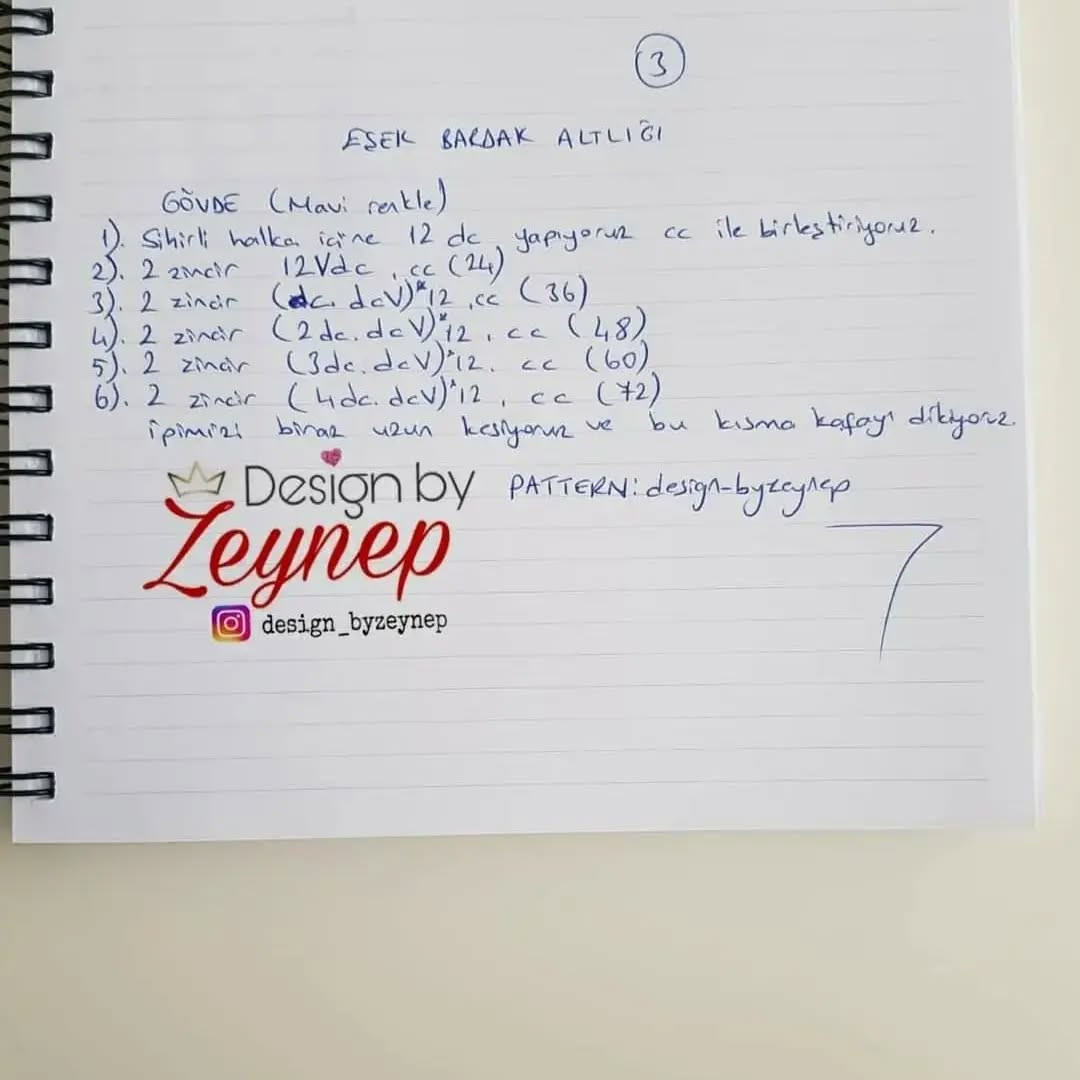 3
EŞEK BARDAK ALTLIĞI
GÖVDE (Mavi renkle)
1). Sihirli halka içine 12 dc yapıyoruz cc ile birleştiriyoruz.
2). 2 zincir 12Vdc, cc (24)
3). 2 zincir (dc. dcV)*12, cc (36)
4). 2 zincir (2dc. dcV)*12, cc (48)
5). 2 zincir (3dc. dcV)*12. cc (60)
6). 2 zincir (4dc. dcV)*12, cc (72)
ipimizi biraz uzun kesiyoruz ve bu kısma kafayı dikiyoruz.
Design by PATTERN: design-byzeynep
Zeynep
design_byzeynep
7